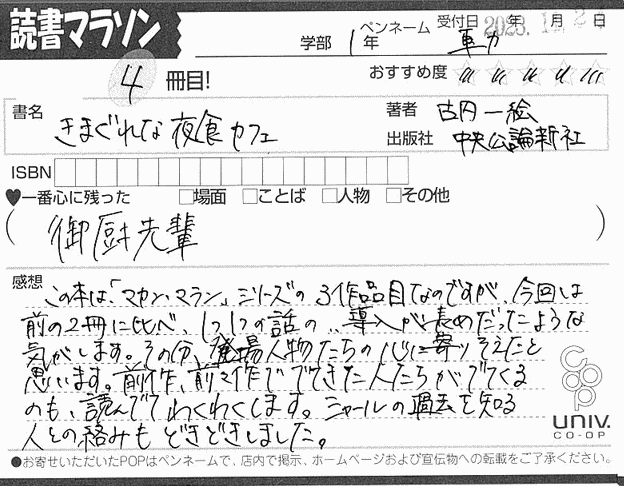 読書マラソン
学部 1年 ペンネーム 車力 受付日 2023年 月 日
4冊目!
おすすめ度
書名 きまぐれな夜食カフェ
著者 古内一絵
出版社 中央公論新社
ISBN
♥一番心に残った □場面 □ことば □人物 □その他
(御厨先輩)
感想
この本は「マカン・マラン」シリーズの3作品目なのですが、今回は
前の2冊に比べ、1つ1つの話の、導入が長めだったような
気がします。その分、登場人物たちの心に寄りそえたと
思います。前作、前々作ででてきた人たちがでてくる
のも、読んでてわくわくします。シャールの過去を知る
人との絡みもどきどきしました。
coop
UNIV.
CO-OP
●お寄せいただいたPOPはペンネームで、店内で掲示、ホームページおよび宣伝物への転載をご了承ください。